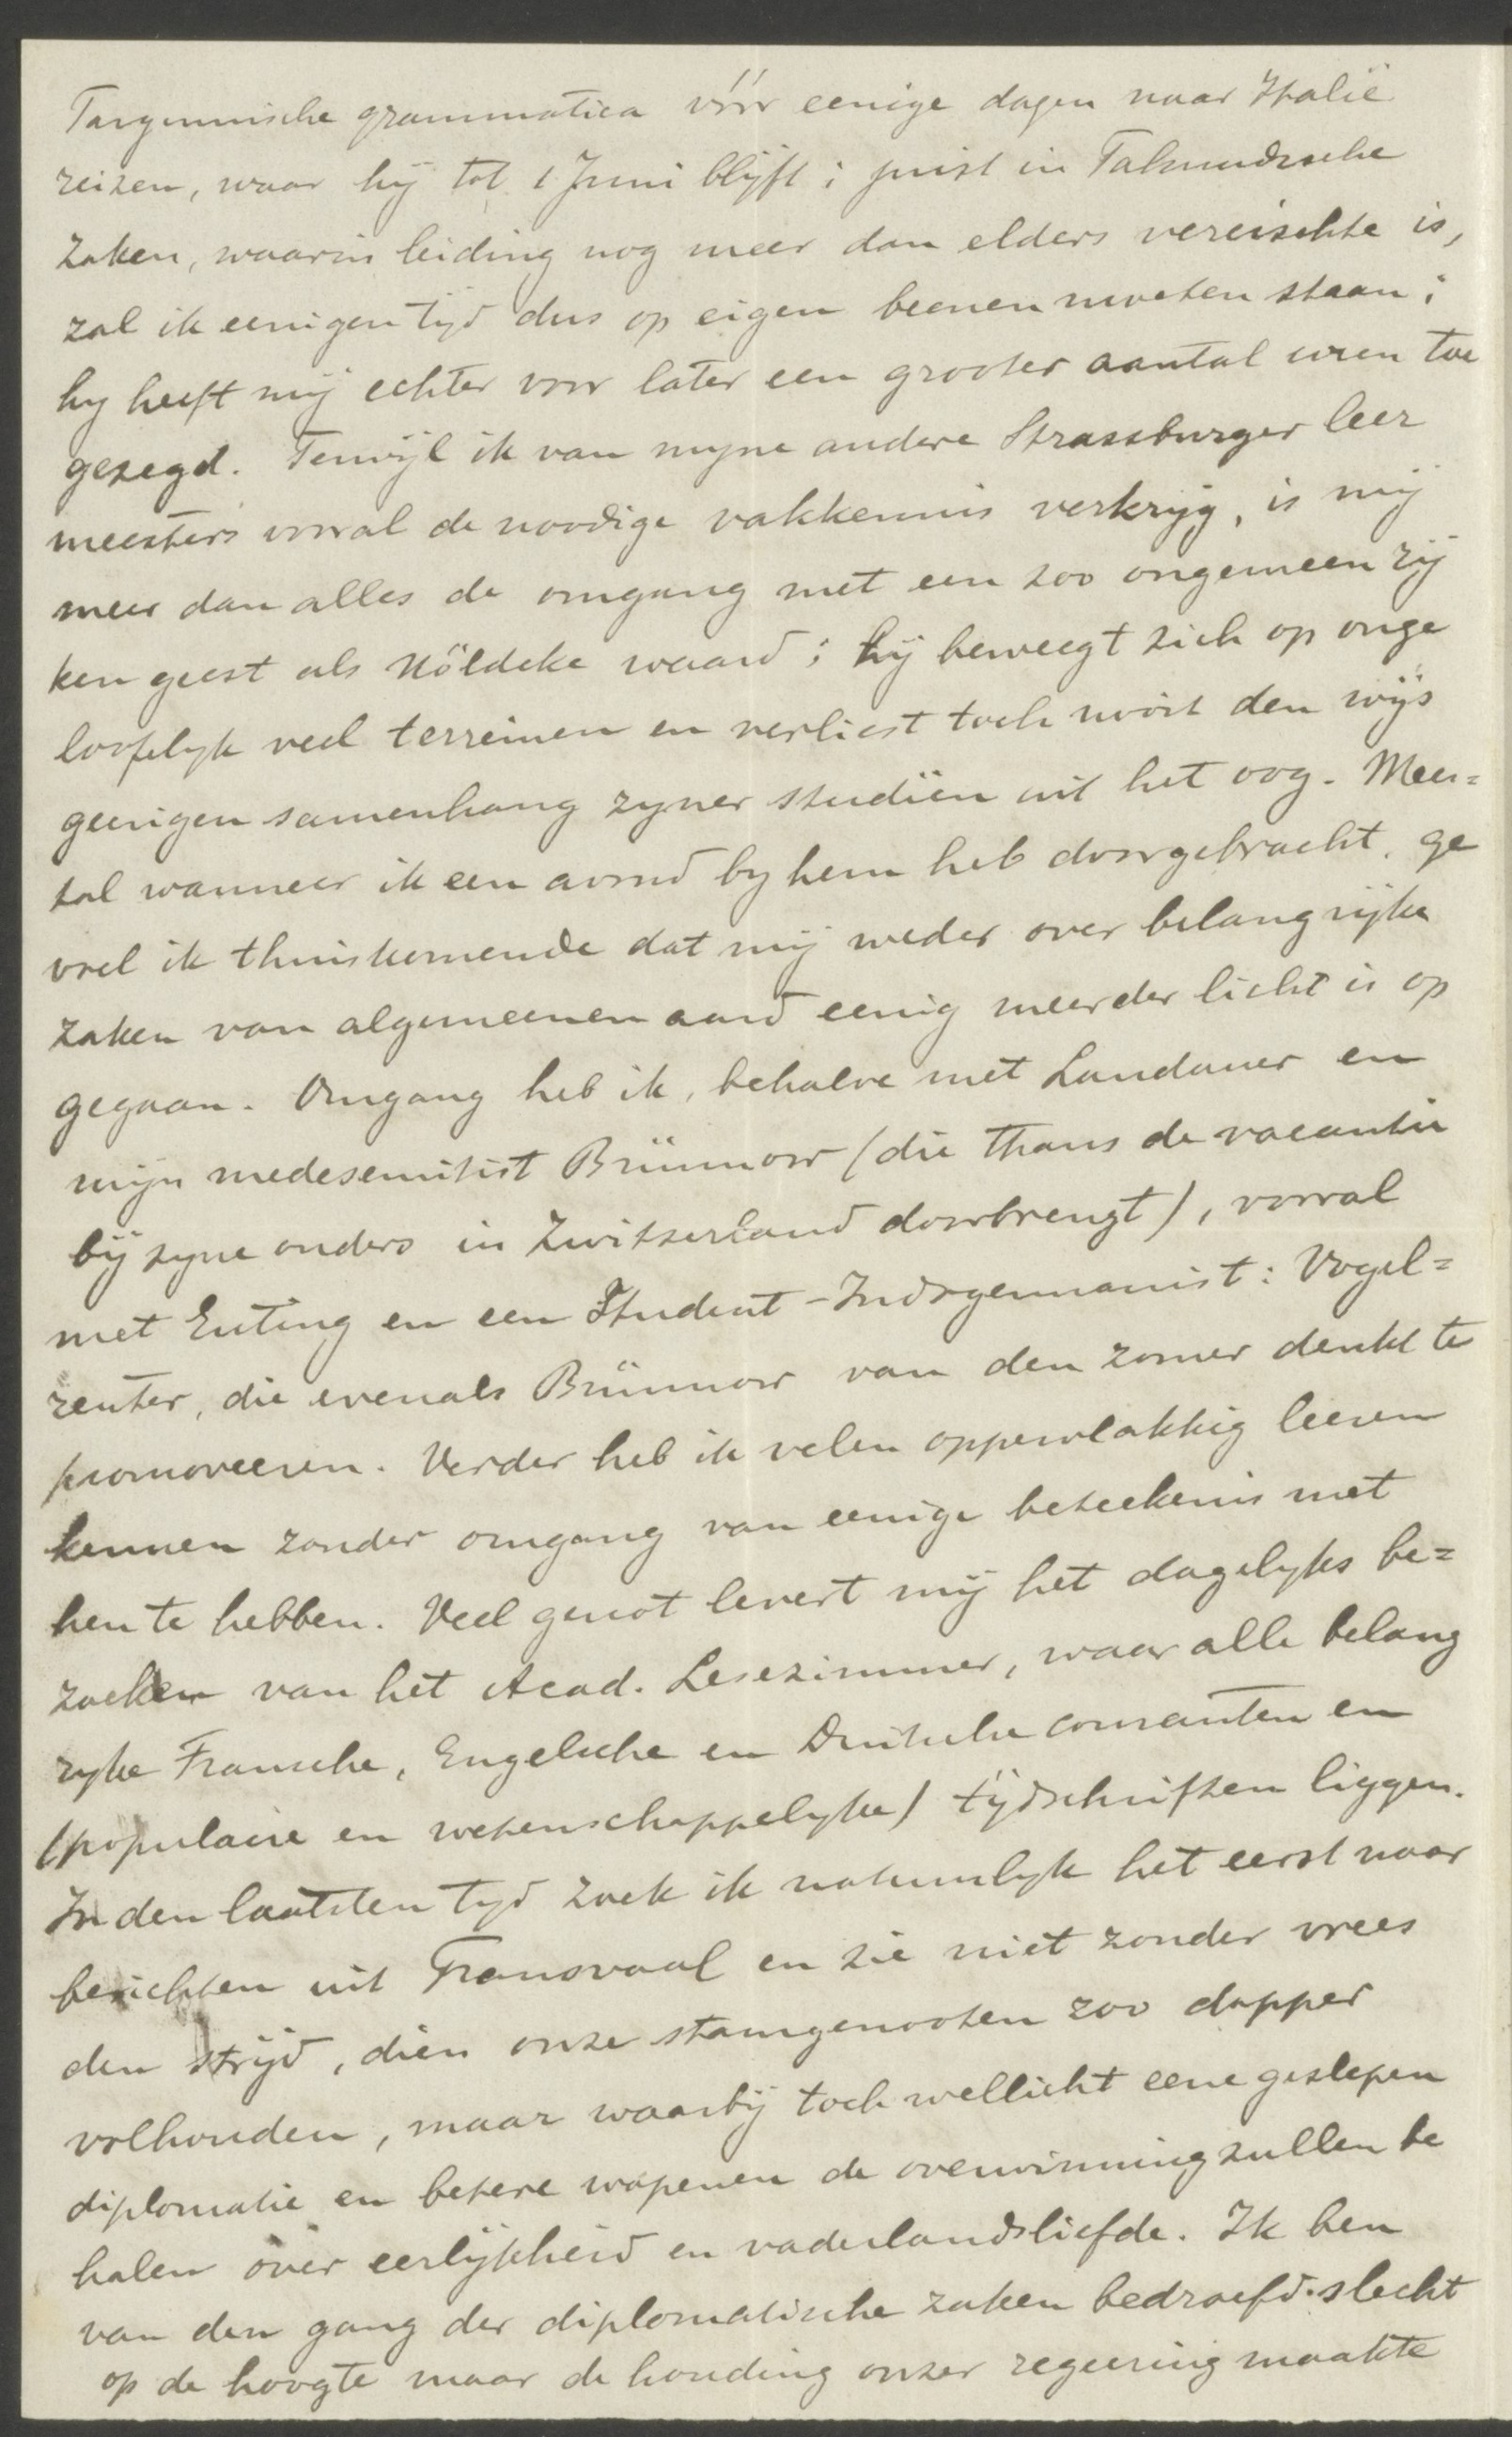 Targumische grammatica vóór eenige dagen naar Italië
reizen, waar hij tot 1 Juni blijft; juist in Talmudische
zaken, waarin leiding nog meer dan elders vereischte is,
zal ik eenigen tijd dus op eigen beenen moeten staan;
hy heeft mij echter voor later een grooter aantal uren toe
gezegd. Terwijl ik van myne andere Strassburger leer
meesters vooral de noodige vakkennis verkryg, is mij
meer dan alles de omgang met een zoo ongemeen rij
ken geest als Nöldeke waard; hij beweegt zich op onge
loofelyk veel terreinen en verliest toch nooit den wijs
geerigen samenhang zyner studiën uit het oog. Meer=
tal wanneer ik een avond by hem heb doorgebracht, ge
voel ik thuiskomende dat mij weder over belangrijke
zaken van algemeenen aard eenig meerder licht is op
gegaan. Omgang heb ik, behalve met Landauer en
mijn medesemitist Brünnow (die thans de vacantie
bij zyne ouders in Zwitserland doorbrengt), vooral
met Euting en een Student-Indogermanist: Vogel=
reuter, die evenals Brünnow van den zomer denkt te
promoveeren. Verder heb ik velen oppervlakkig leeren
kennen zonder omgang van eenige beteekenis met
hen te hebben. Veel genot levert mij het dagelyks be=
zoeken van het Acad. Lesezimmer, waar alle belang
ryke Fransche, Engelsche en Duitsche couranten en
(populaire en wetenschappelyke) tijdschriften liggen.
In den laatsten tyd zoek ik natuurlyk het eerst naar
berichten uit Transvaal en zie niet zonder vrees
den strijd, dien onze stamgenooten zoo dapper
volhouden, maar waarbij toch wellicht eene geslepen
diplomatie en betere wapenen de overwinning zullen be
halen over eerlijkheid en vaderlandsliefde. Ik ben
van den gang der diplomatische zaken bedroefd slecht
op de hoogte maar de houding onzer regeering maakte